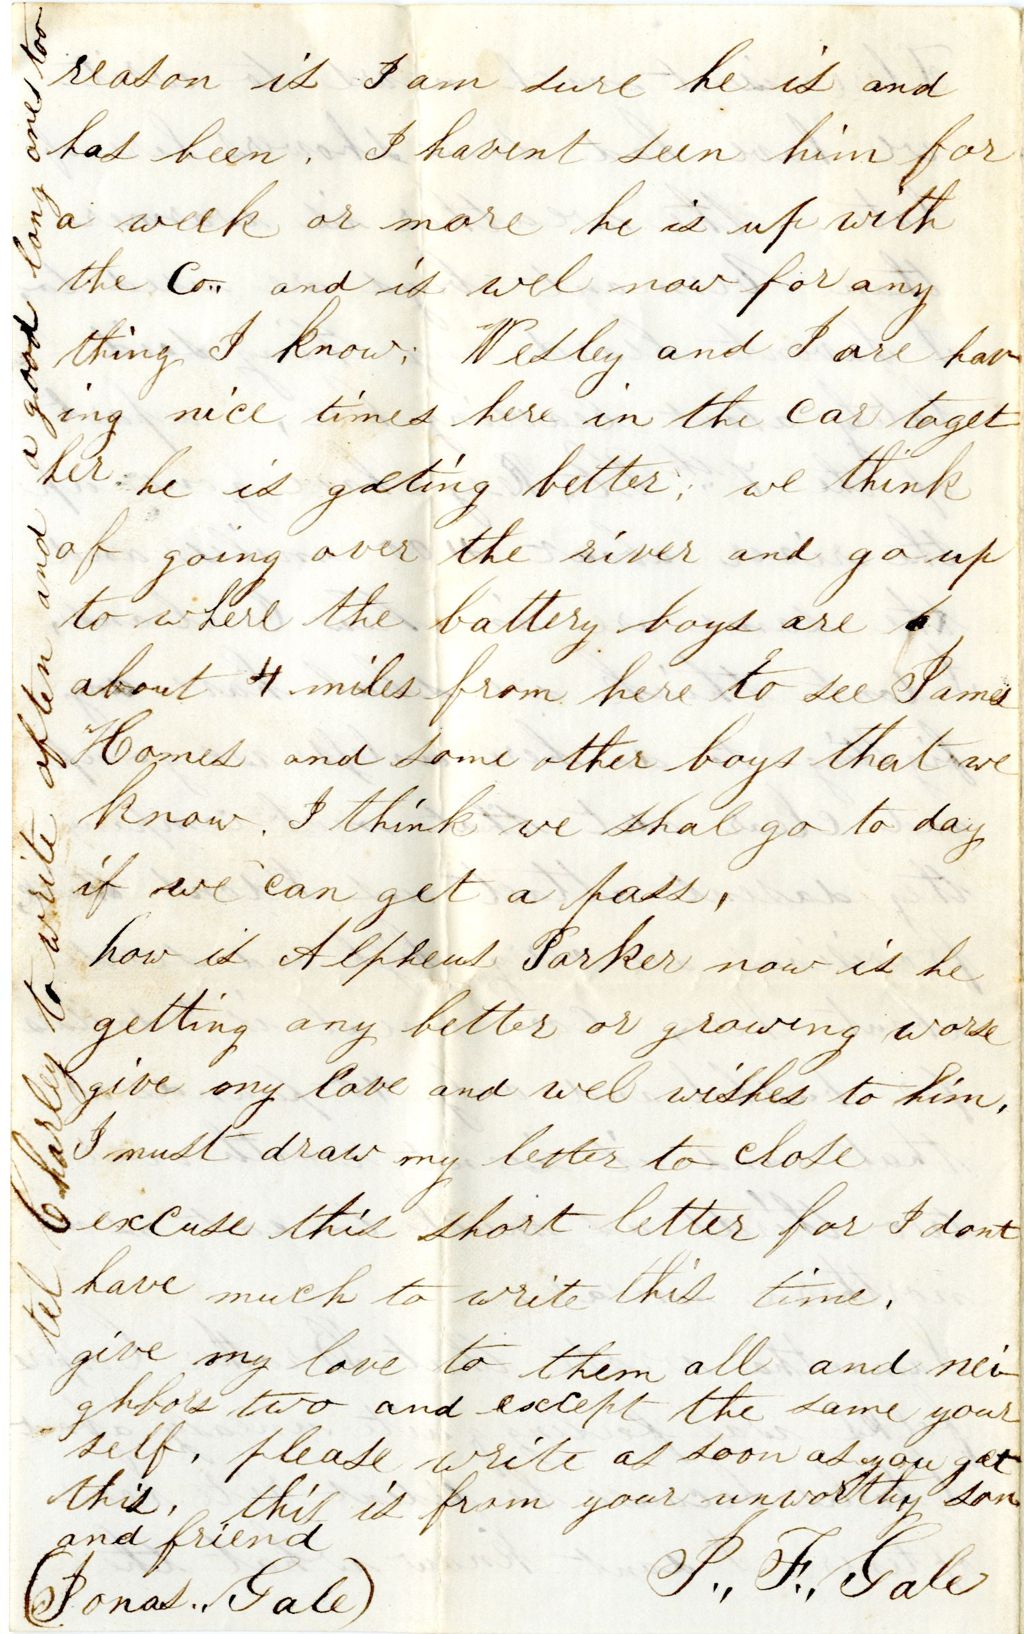 reason is I am sure he is and
has been. I havent seen him for
a week or more he is up with
the Co., and is wel now for any
thing I know; Wesley and I are hav
ing nice times here in the car toget
her. he is getting better; we think
of going over the river and go up
to where the battery boys are
about 4 miles from here to see James
Homes and some other boys that we
know. I think we shal go to day
if we can get a pass,
how is Alpheus Parker now is he
getting any better or growing worse
give my love and wel wishes to him.
I must draw my letter to close
excuse this short letter for I dont
have much to write this time.
give my love to them all and nei
ghbors two and except the same your
self. please write as soon as you get
this. this is from your unworthy son
and friend
J., F., Gale
(Jonas., Gale)
tel Charley to write often and a good long ones too